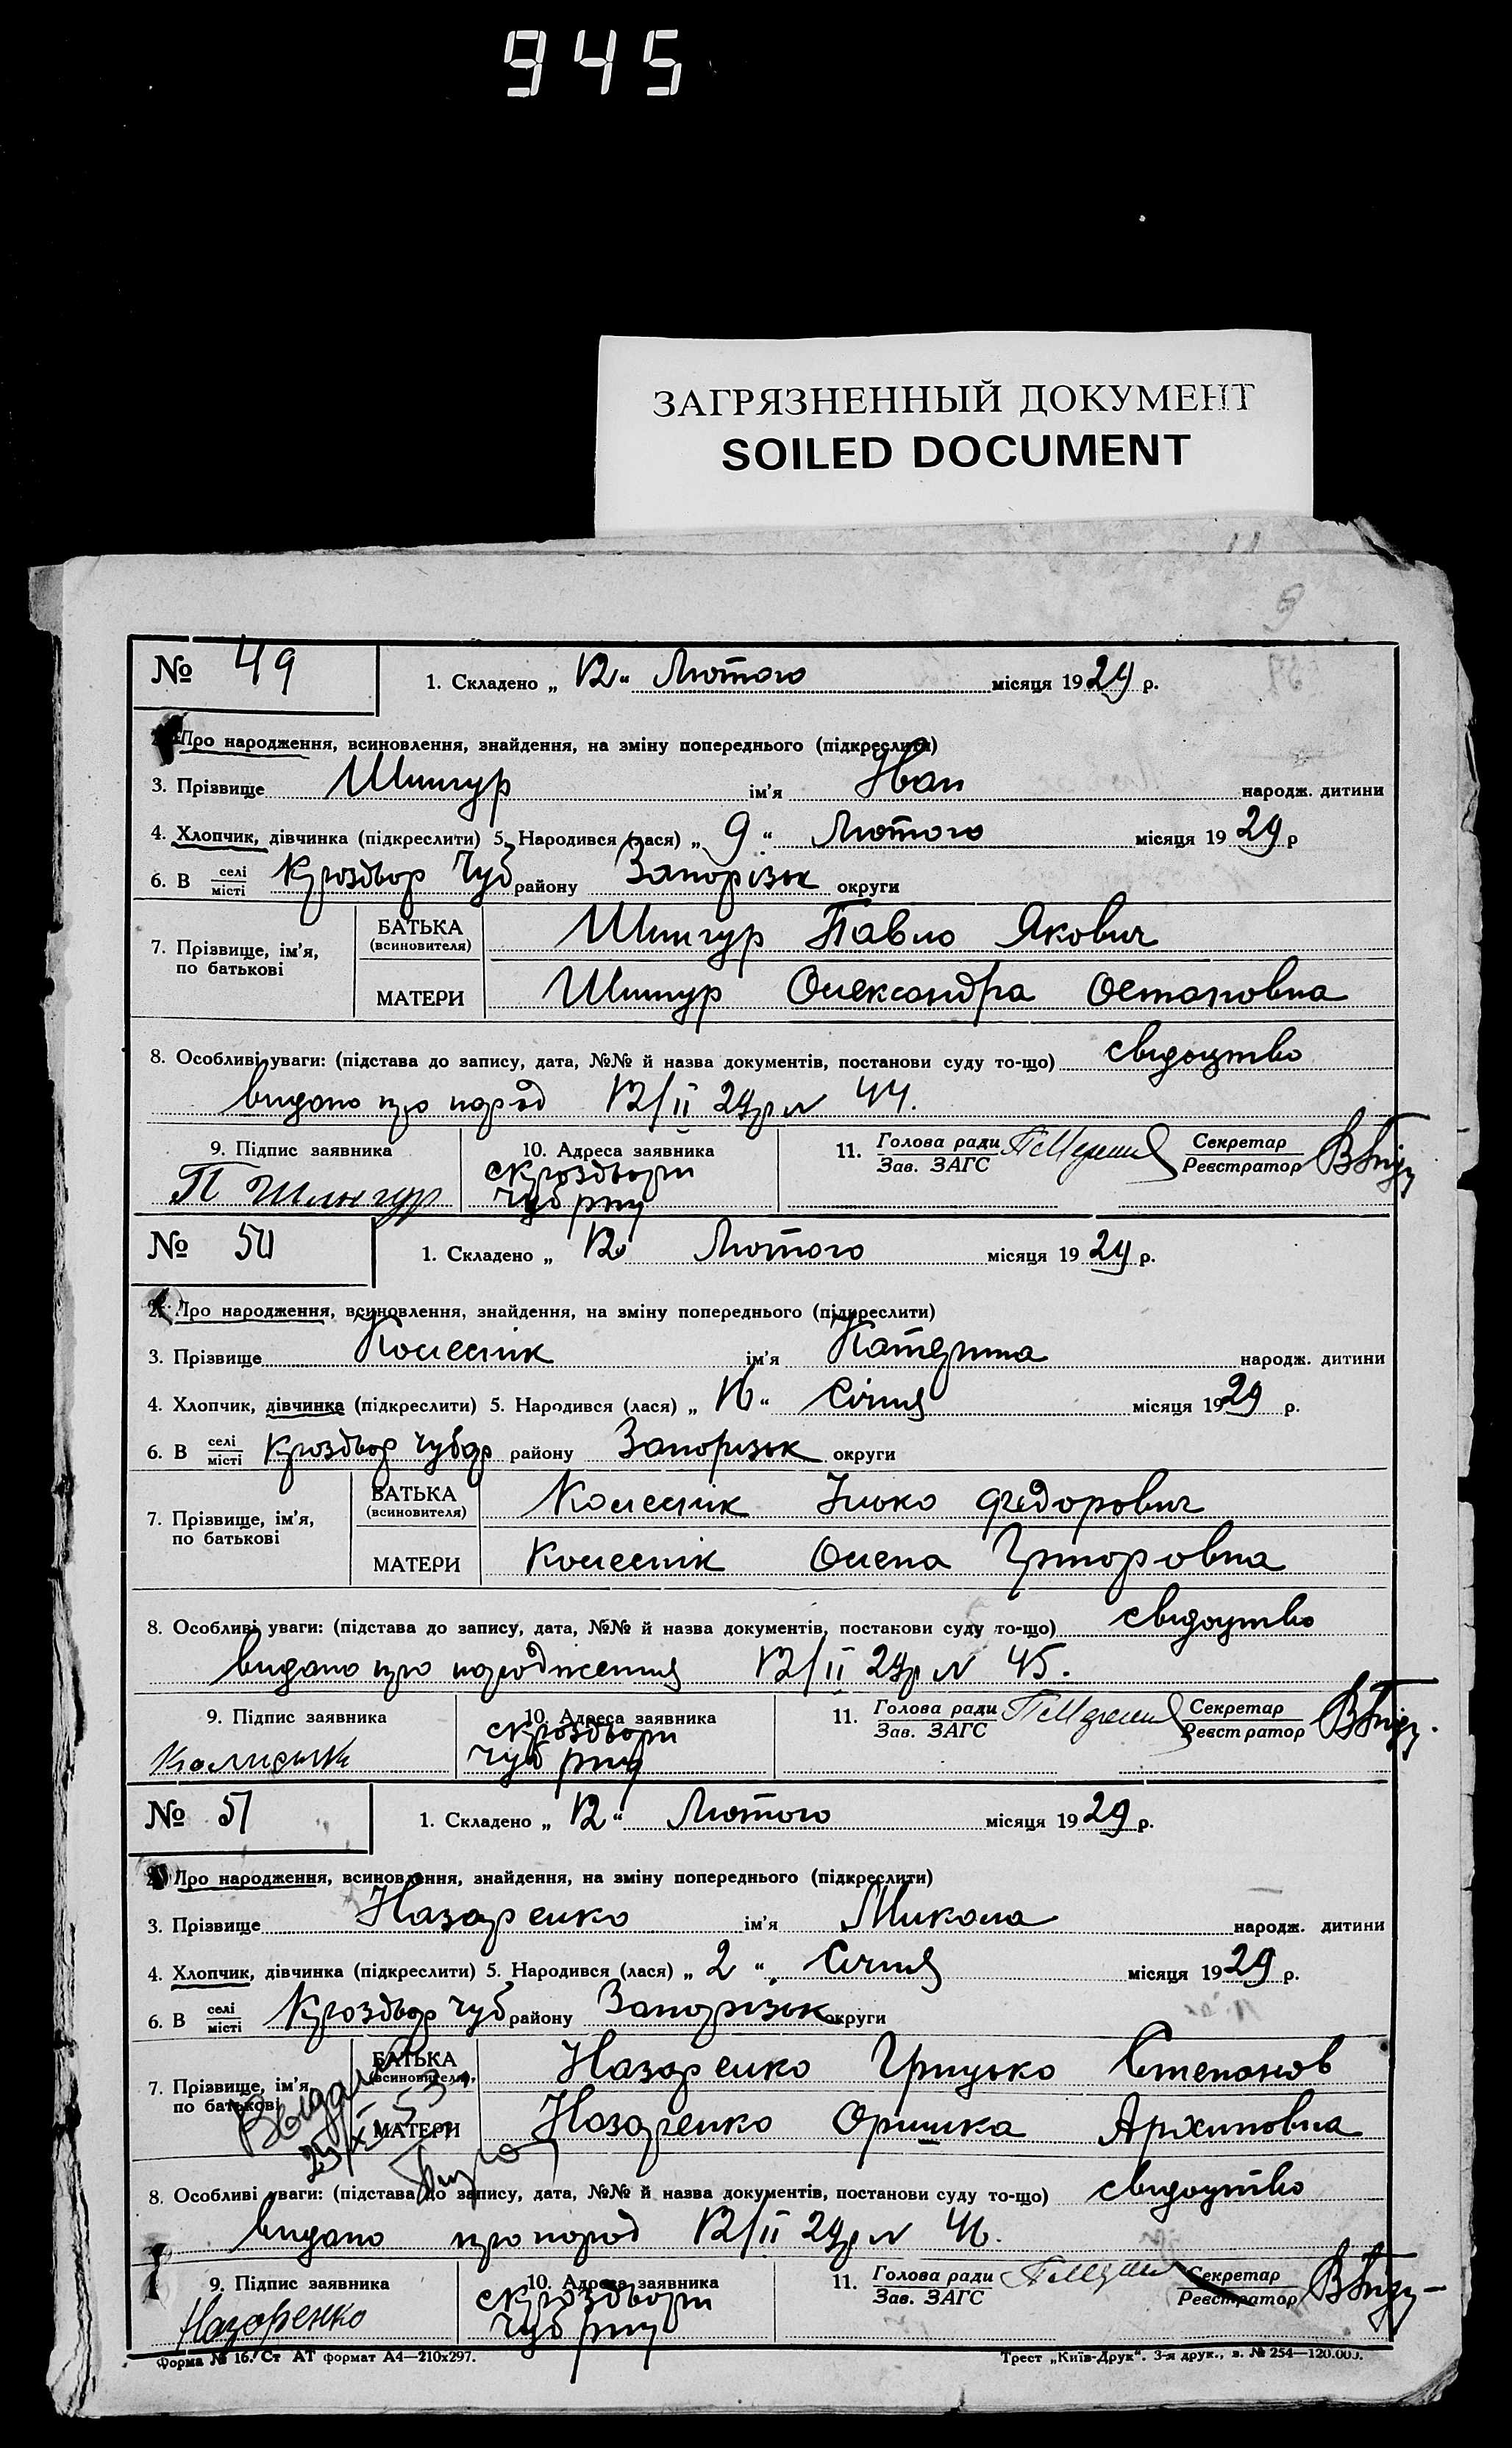 945
ЗАГРЯЗНЕННЫЙ ДОКУМЕНТ
SOILED DOCUMENT
9
№ 49
1. Складено „ 12 “ Лютого місяця 1929 р.
2. Про народження, всиновлення, знайдення, на зміну попереднього (підкреслити)
3. Прізвище Шингур ім'я Іван народж. дитини
4. Хлопчик, дівчинка (підкреслити) 5. Народився (лася) „ 9 “ Лютого місяця 1929 р
6. В селі місті Кроздвор Чуб району Запорізьк округи
7. Прізвище, ім'я, по батькові
БАТЬКА (всиновителя) Шингур Павло Якович
МАТЕРИ Шингур Олександра Остаповна
8. Особливі уваги: (підстава до запису, дата, №№ й назва документів, постанови суду то-що) свидоцтво
видано про народ 12/II 29р N 44.
9. Підпис заявника
П Шингур
10. Адреса заявника
11. Голова ради Зав. ЗАГС
Секретар Реєстратор
№ 50
1. Складено „ 12 “ Лютого місяця 1929 р.
2. Про народження, всиновлення, знайдення, на зміну попереднього (підкреслити)
3. Прізвище Колеснік ім'я Катерина народж. дитини
4. Хлопчик, дівчинка (підкреслити) 5. Народився (лася) „ 16 “ Січня місяця 1929 р.
6. В селі місті Кроздвор Чубар району Запорізьк округи
7. Прізвище, ім'я, по батькові
БАТЬКА (всиновителя) Колеснік Ілько Федорович
МАТЕРИ Колеснік Олена Григоровна
8. Особливі уваги: (підстава до запису, дата, №№ й назва документів, постанови суду то-що) свидоцтво
видано про народження 12/II 29р N 45.
9. Підпис заявника
10. Адреса заявника
11. Голова ради Зав. ЗАГС
Секретар Реєстратор
№ 51
1. Складено „ 12 “ Лютого місяця 1929 р.
2. Про народження, всиновлення, знайдення, на зміну попереднього (підкреслити)
3. Прізвище Назаренко ім'я Микола народж. дитини
4. Хлопчик, дівчинка (підкреслити) 5. Народився (лася) „ 2 “ Січня місяця 1929 р.
6. В селі місті Кроздвор Чуб району Запорізьк округи
7. Прізвище, ім'я, по батькові
БАТЬКА (всиновителя) Назаренко Грицько Степанов
МАТЕРИ Назаренко Оришка Архиповна
8. Особливі уваги: (підстава до запису, дата, №№ й назва документів, постанови суду то-що) свидоцтво
видано про народ 12/II 29р N 46.
9. Підпис заявника
Назаренко
10. Адреса заявника
11. Голова ради Зав. ЗАГС
Секретар Реєстратор
Форма № 16. Ст АТ формат А4—210х297.
Трест „Київ-Друк“. 3-я друк., з. № 254—120.000.